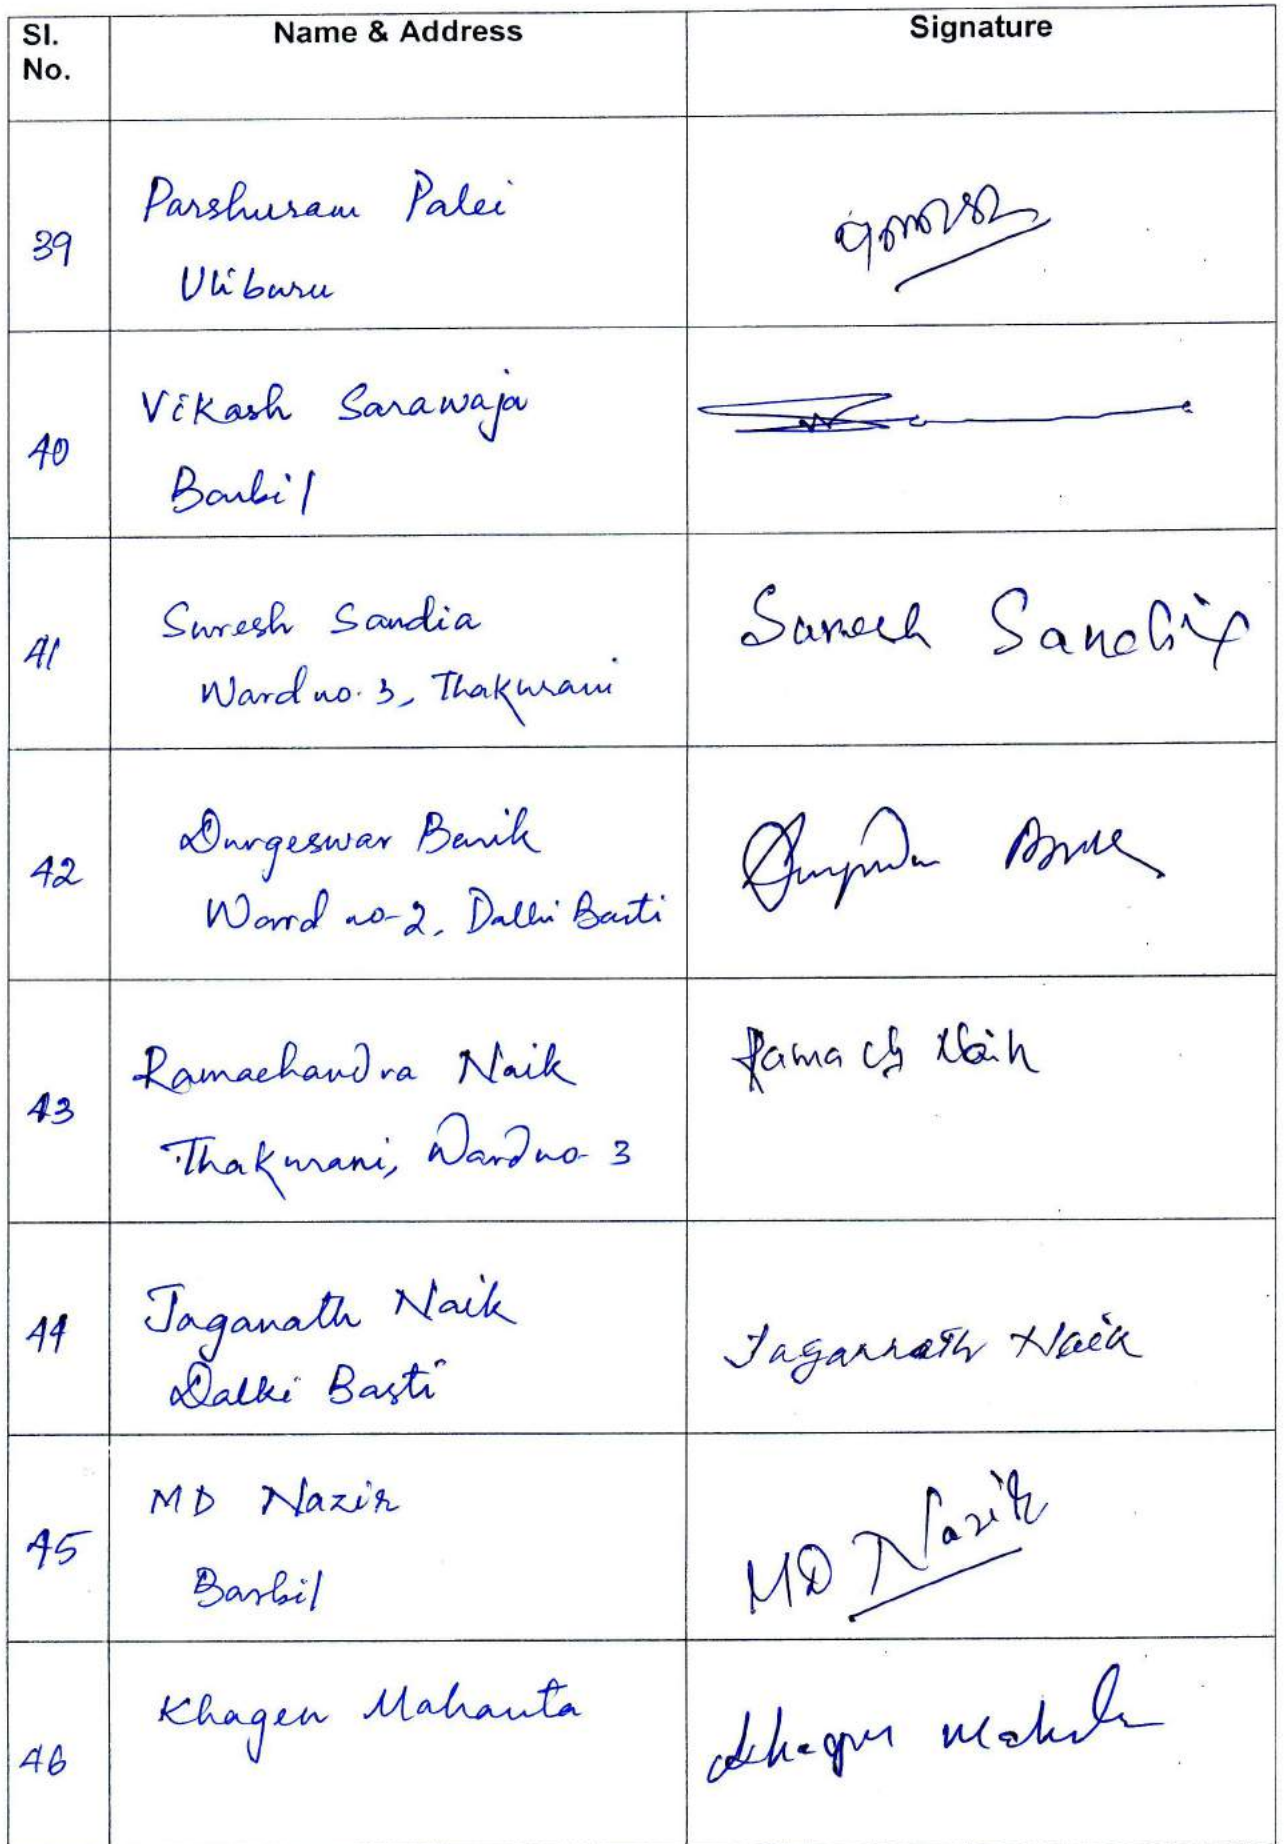 Sl. No.
Name & Address
Signature
39
Parshuram Palei
Uliburu
40
Vikash Sarawaja
Barbil
41
Suresh Sandia
Ward no. 3, Thakurani
Suresh Sandia
42
Durgeswar Barik
Ward no-2, Dalki Basti
43
Ramachandra Naik
Thakurani, Ward no-3
Rama ch Naik
44
Jaganath Naik
Dalki Basti
Jagannath Naik
45
MD Nazir
Barbil
MD Nazir
46
Khagen Mahanta